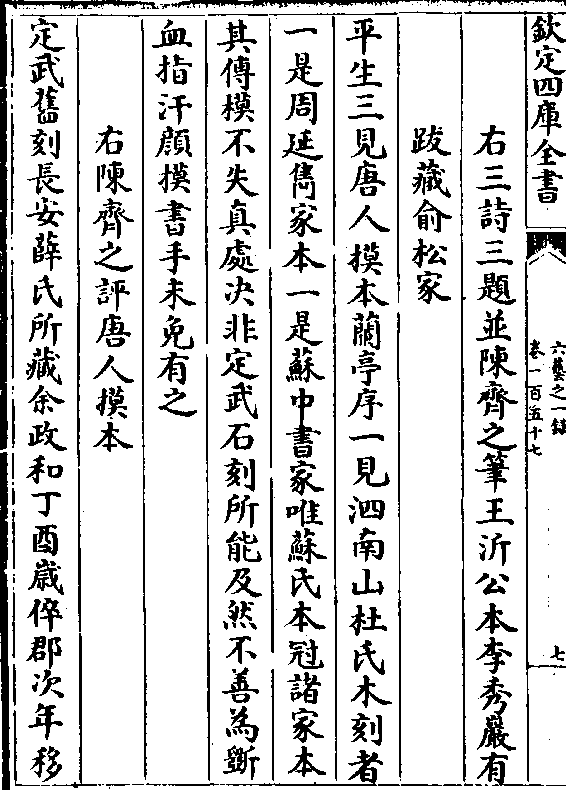 欽定四庫全書
六藝之一録
卷一百五十七
七
右三詩三題並陳齊之筆王沂公本李秀巖有
跋藏俞松家
平生三見唐人摸本蘭亭序一見泗南山杜氏木刻者
一是周延雋家本一是蘇中書家唯蘇氏本冠諸家本
其傳模不失真處决非定武石刻所能及然不善為斵
血指汗顔摸書手未免有之
右陳齊之評唐人摸本
定武舊刻長安薛氏所藏余政和丁酉歲倅郡次年移